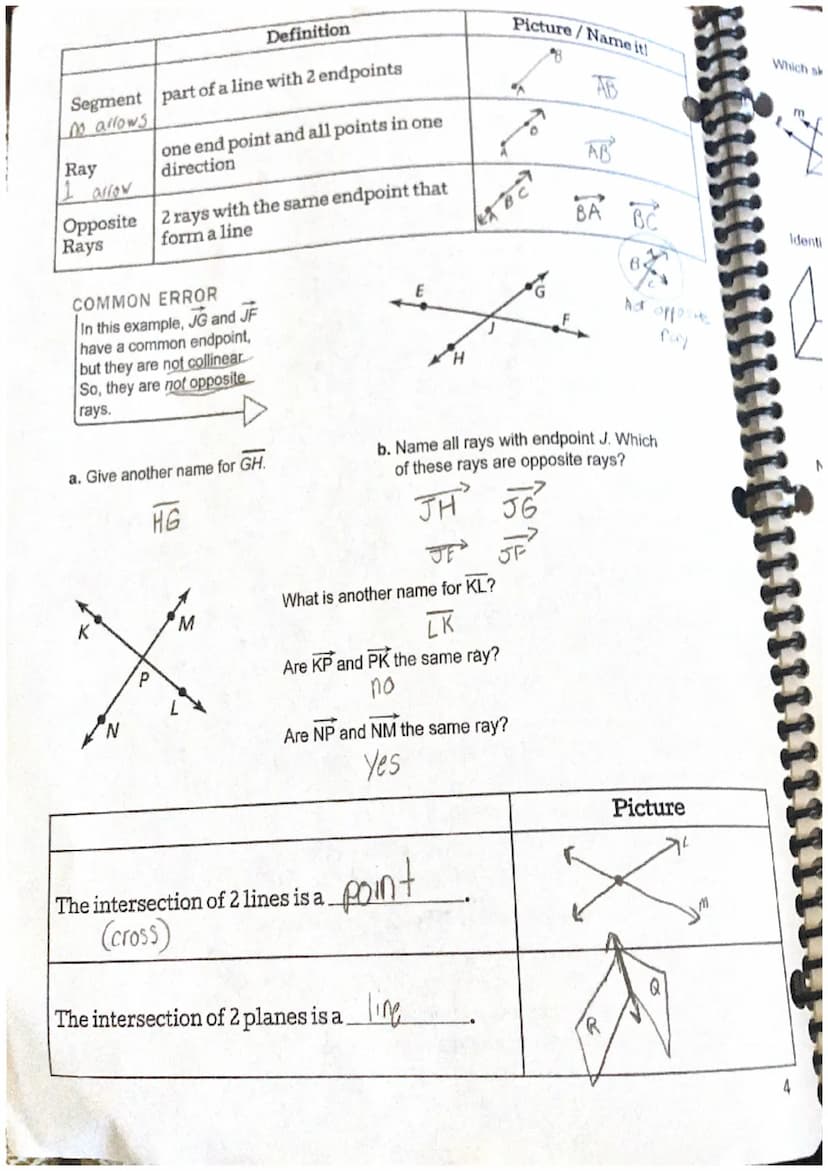 Definition
Picture / Name it!
Segment
no arrows
part of a line with 2 endpoints
A B
AB
Ray
1 arrow
one end point and all points in one
direction
A B
AB
Opposite
Rays
2 rays with the same endpoint that
form a line
A B C
BA BC
B
C
Not opposite
Ray
COMMON ERROR
In this example, JG and JF
have a common endpoint,
but they are not collinear.
So, they are not opposite
rays.
E
G
J
F
H
a. Give another name for GH.
HG
b. Name all rays with endpoint J. Which
of these rays are opposite rays?
JH JG
JE JF
K
M
P
L
N
What is another name for KL?
LK
Are KP and PK the same ray?
no
Are NP and NM the same ray?
Yes
Picture
The intersection of 2 lines is a point.
(cross)
L
m
The intersection of 2 planes is a line.
Q
R
4
Which
m
Identi